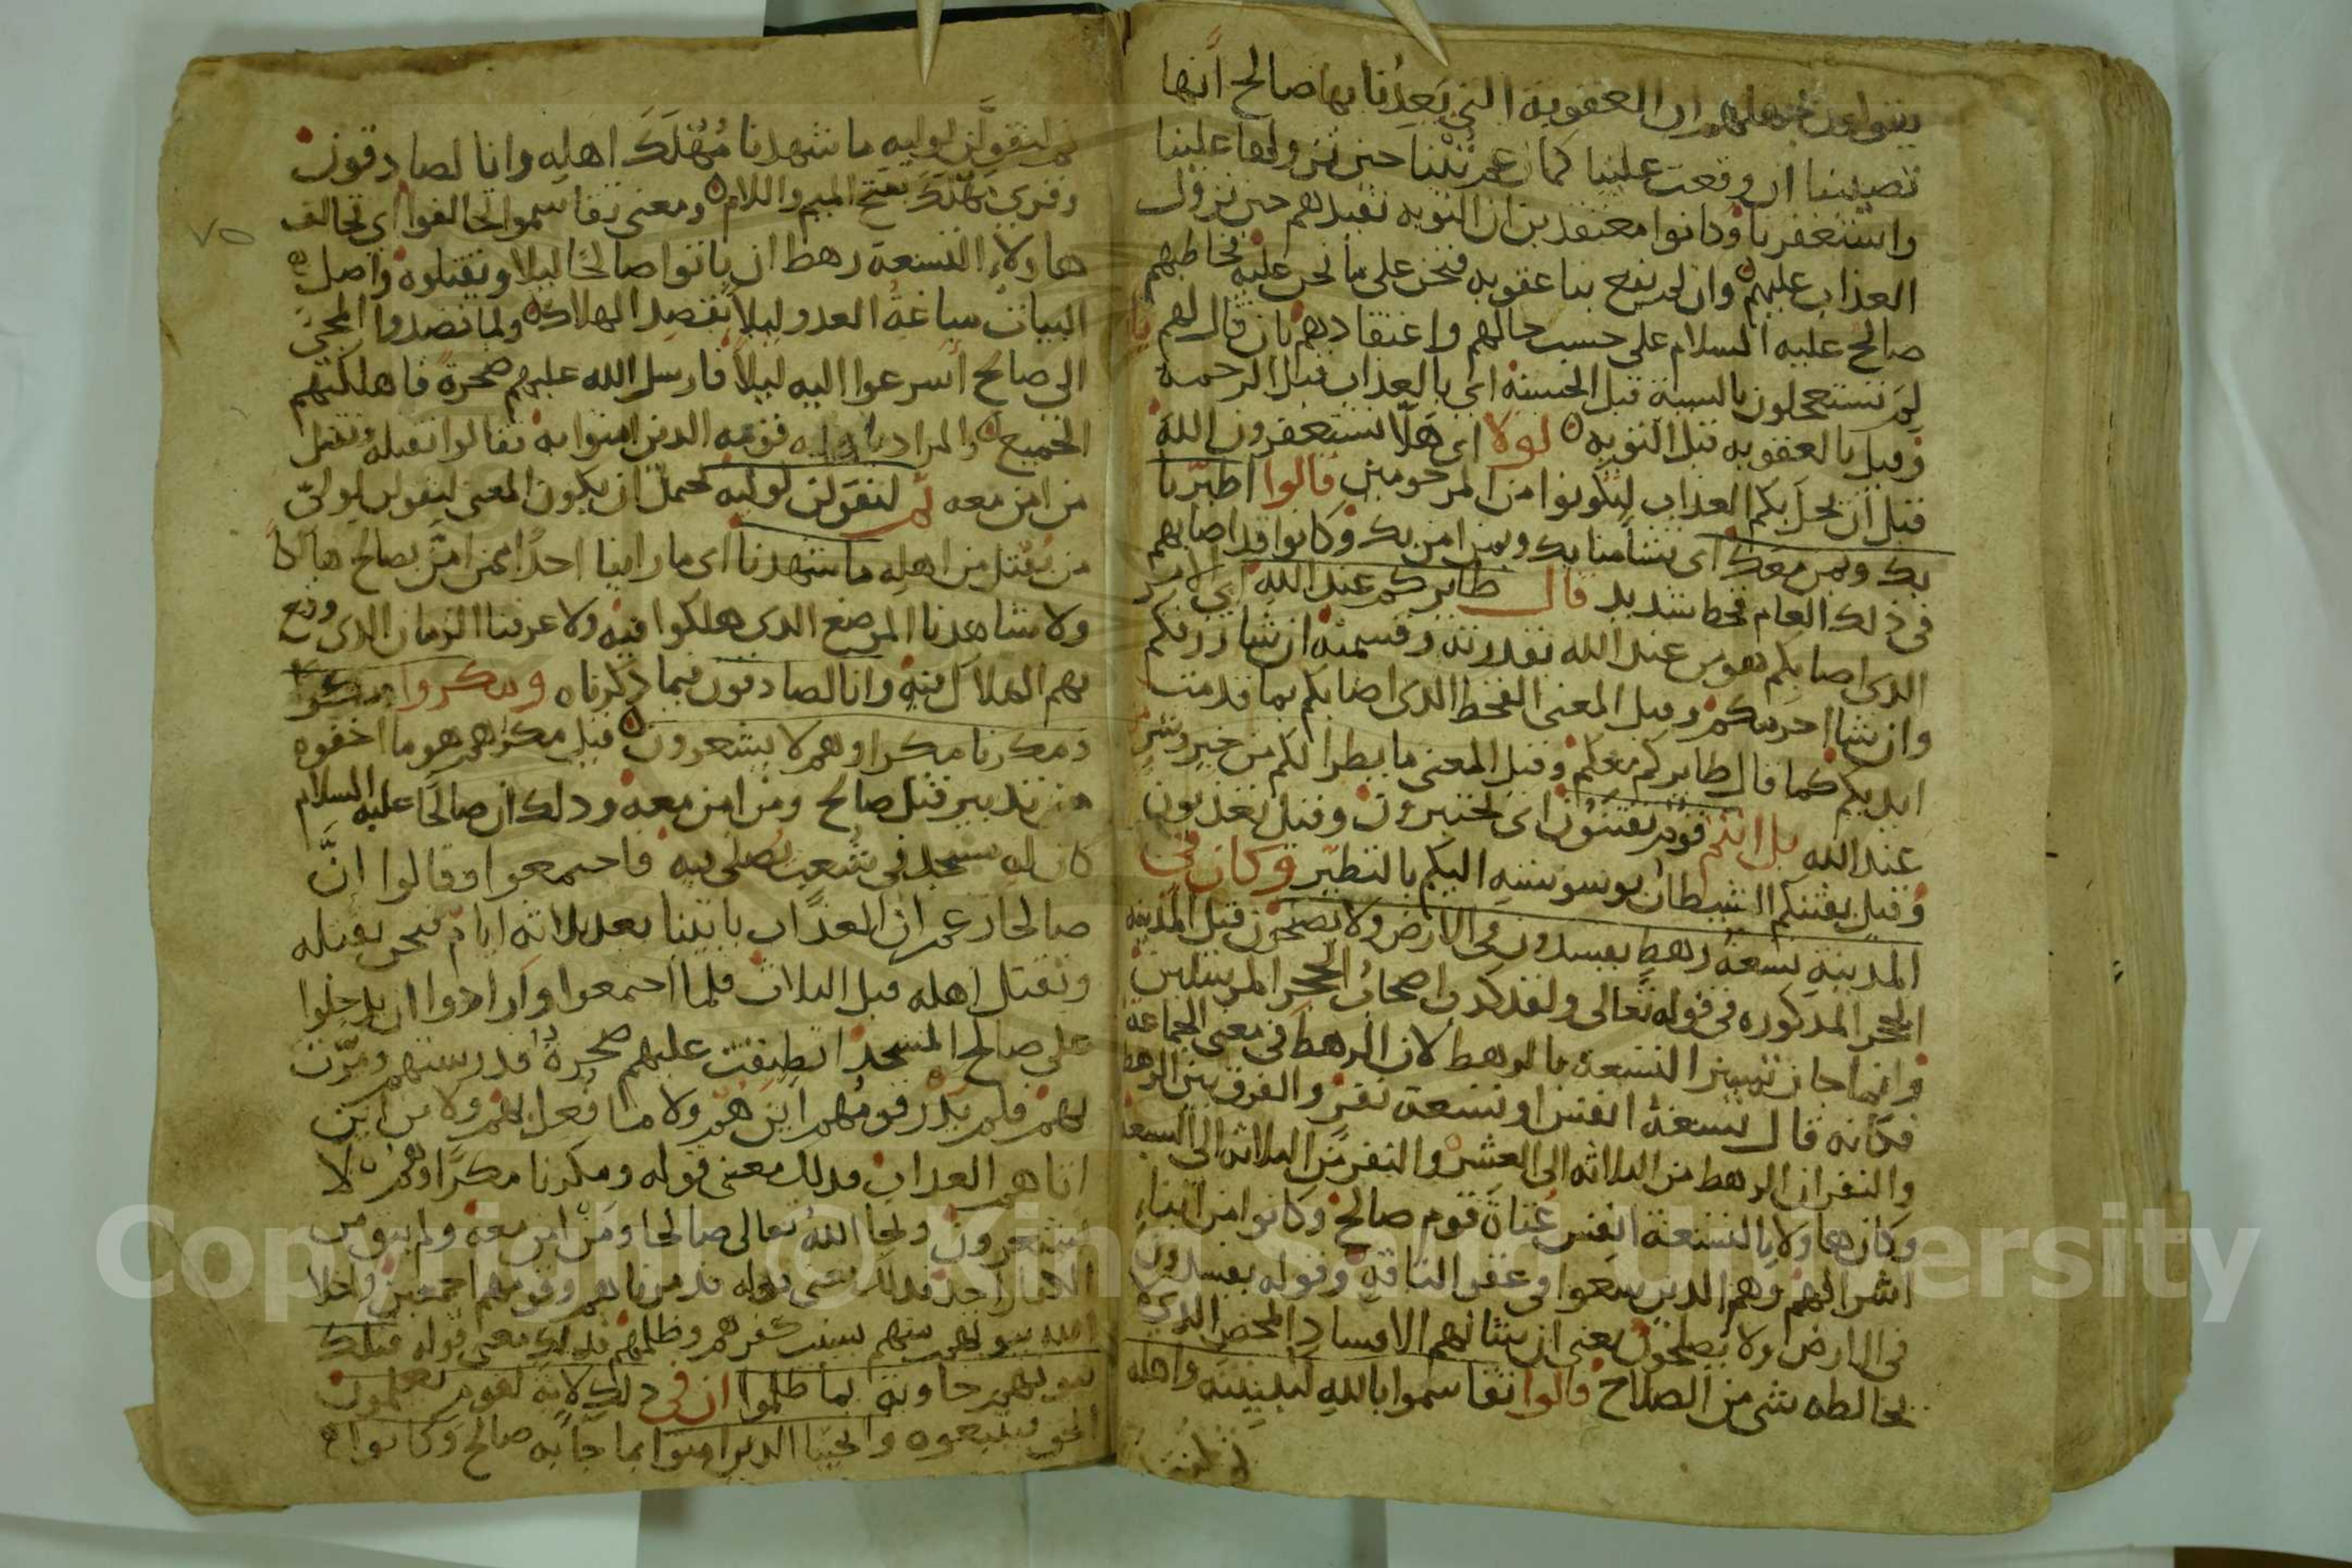 يتواعدون بجهلهم ان العقوبة التي يَعِدُنا بها صالح انها
تصيبنا ان وقعت علينا كما زعم تُبْنا حين نزولها علينا
واستغفرنا وكانوا معتقدين ان التوبه تفيدهم حين نزول
العذاب عليهم وان لم يقع بنا عقوبه فنحن على ما نحن عليه فخاطبهم
صالح عليه السلام على حسب حالهم واعتقادهم بان قال لهم يا
لِمَ تستعجلون بالسيئة قبل الحسنة اي بالعذاب قبل الرحمة
وقيل بالعقوبه قبل التوبه لولا اي هَلّا تستغفرون الله
قبل ان يحل بكم العذاب لتكونوا من المرحومين قالوا اطيّرنا
بك وبمن معك اي تشأمنا بك وبمن امن بك وكانوا قد اصابهم
في ذلك العام قحط شديد قال طايركم عند الله اي الامر
الذي اصابكم هو من عند الله بقدرته وقسمته ان شا رزقكم
وان شا احرمكم وقيل المعنى القحط الذي اصابكم بما قدمت
ايديكم كما قال طايركم معكم وقيل المعنى ما يطرا لكم من خير وشر
عند الله بل انتم قوم تفتنون اي تختبرون وقيل تعذبون
وقيل يفتنكم الشيطان بوسوسته اليكم بالتطيّر وكان في
المدينة تسعة رهط يفسدون في الارض ولا يصلحون قيل المدينه
الحجر المذكوره في قوله تعالى ولقد كذب اصحاب الحجر المرسلين
وانما جاز تمييز التسعة بالرهط لان الرهط في معنى الجماعة
فكانه قال تسعة انفس او تسعة نفر والفرق بين الرهط
والنفر ان الرهط من الثلاثه الى العشره والنفر من الثلاثه الى التسعه
وكان هاولا التسعة انفس عُتاة قوم صالح وكانوا من ابناءِ
اشرافهم وهم الذين سعوا في عقر الناقة وقوله يفسدون
في الارض ولا يصلحون يعني ان شانهم الافساد المحض الذي لا
يخالطه شي من الصلاح قالوا تقاسموا بالله لنبيتنه واهله
ثم لنقولن
ثم لنقولَن لوليه ما شهدنا مُهْلَكَ اهله وانا لصادقون
وقري مَهْلَكَ بفتح الميم واللام ومعنى تقاسموا تحالفوا اي تحالف
هاولاء التسعة رهط ان ياتوا صالحًا ليلا ويقتلوه واصل
البيات مباغتة العدو ليلا بقصد الهلاك ولما قصدوا المجئ
الى صالح اسرعوا اليه ليلا فارسل الله عليهم صخرة فاهلكتهم
الجميع والمراد باهله قومه الذين امنوا به فقالوا نقتله ونقتل
من امن معه ثم لنقولن لوليه يحتمل ان يكون المعنى لنقولن لوليّ
من يُقتل من اهله ما شهدنا اي ما راينا احدًا ممن امن بصالح هالكًا
ولا شاهدنا الموضع الذي هلكوا فيه ولا عرفنا الزمان الذي وقع
بهم الهلاك فيه وانا لصادقون فيما ذكرناه ومكروا مكرًا
ومكرنا مكرا وهم لا يشعرون قيل مكرهم هو ما اخفوه
من تدبير قتل صالح ومن امن معه وذلك ان صالحًا عليه السلام
كان له مسجد في شعب يصلي فيه فاجتمعوا وقالوا انَّ
صالحا زعم ان العذاب ياتينا بعد ثلاثه ايام فنحن نقتله
ونقتل اهله قبل الثلاث فلما اجتمعوا وارادوا ان يدخلوا
على صالح المسجد انطبقت عليهم صخرة قد رستهم ومرّت
بهم فلم يدر قومهم اين هم ولا ما فُعل بهم ولا من اين
اتاهم العذاب فذلك معنى قوله ومكرنا مكرًا وهم لا
يشعرون ونجا اللهُ تعالى صالحا ومَن امن معه ولم يبق من
الكفار احد فذلك معنى قوله دمرناهم وقومهم اجمعين واخلا
الله بيوتهم منهم بسبب كفرهم وظلمهم فذلك معنى قوله فتلك
بيوتهم خاوية بما ظلموا ان في ذلك لاية لقوم يعلمون
الحق فيتبعوه وانجينا الذين امنوا بما جآ به صالح وكانوا
٧٥
Copyright © King Saud University